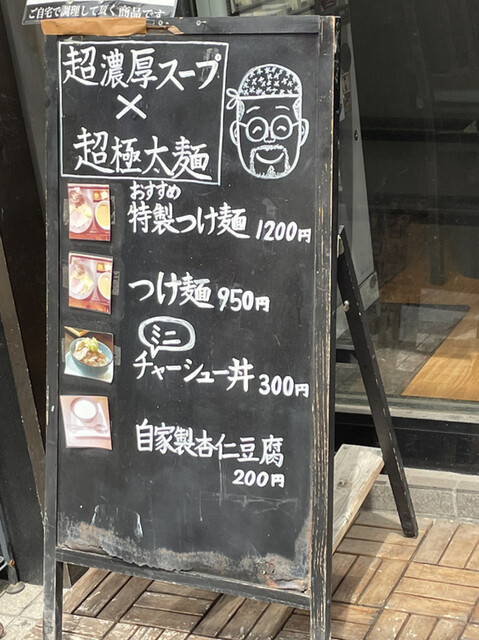 ご自宅で調理して頂く商品です
超濃厚スープ
×
超極太麺
おすすめ
特製つけ麺 1200円
つけ麺 950円
ミニ
チャーシュー丼 300円
自家製杏仁豆腐
200円